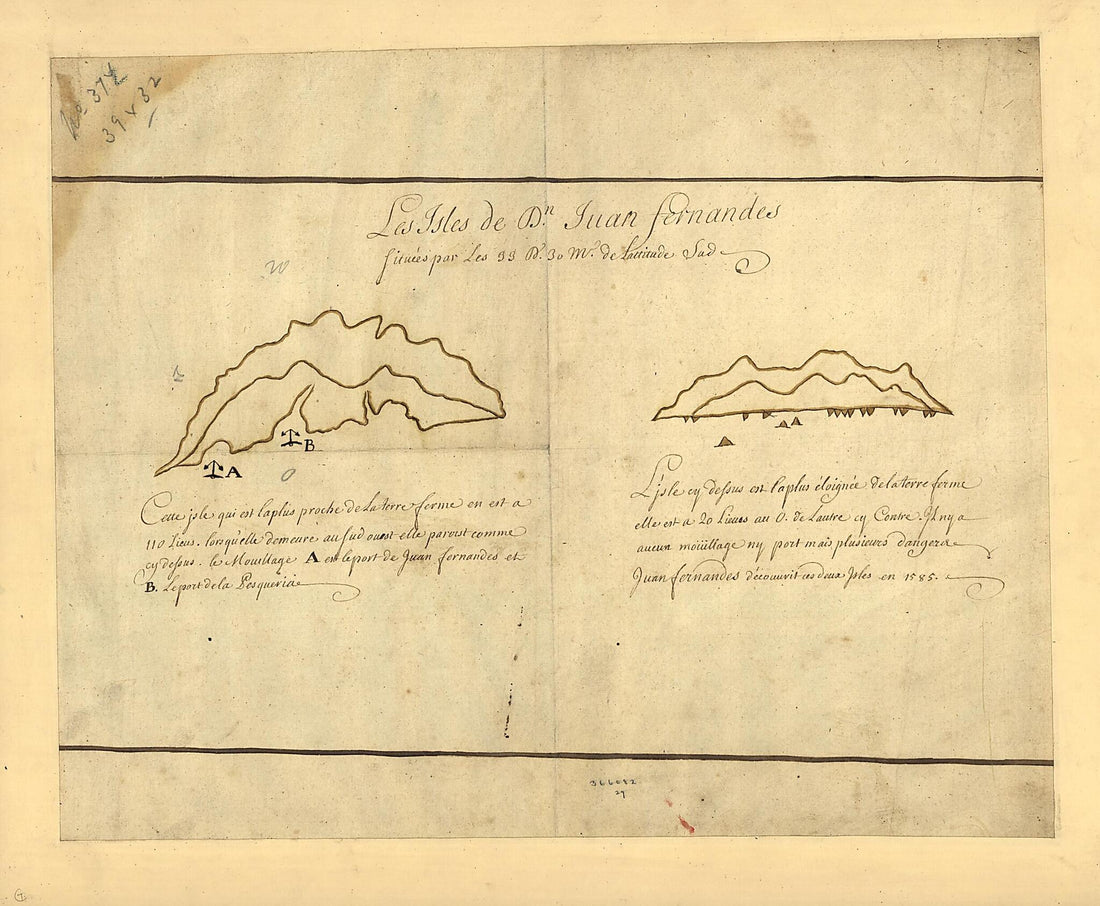 No. 374
39 x 32
Les Isles de Dn. Juan fernandes
situées par Les 33 D. 30 M. de Lattitude Sud
W
B
A
O
Cette jsle qui est la plus proche de La terre ferme en est a
110 Lieus. lorsqu'elle demeure au sud ouest elle paroist comme
cy dessus. le Mouillage A est le port de Juan fernandes et
B. Le port de la Pesqueria
L'jsle cy dessus est la plus éloignée de la terre ferme
elle est a 20 Lieues au O. de Lautre cy Contre. Jl ny a
aucun moüillage ny port mais plusieurs dangers
Juan fernandes découvrit ces deux Jsles en 1585.
366082
29